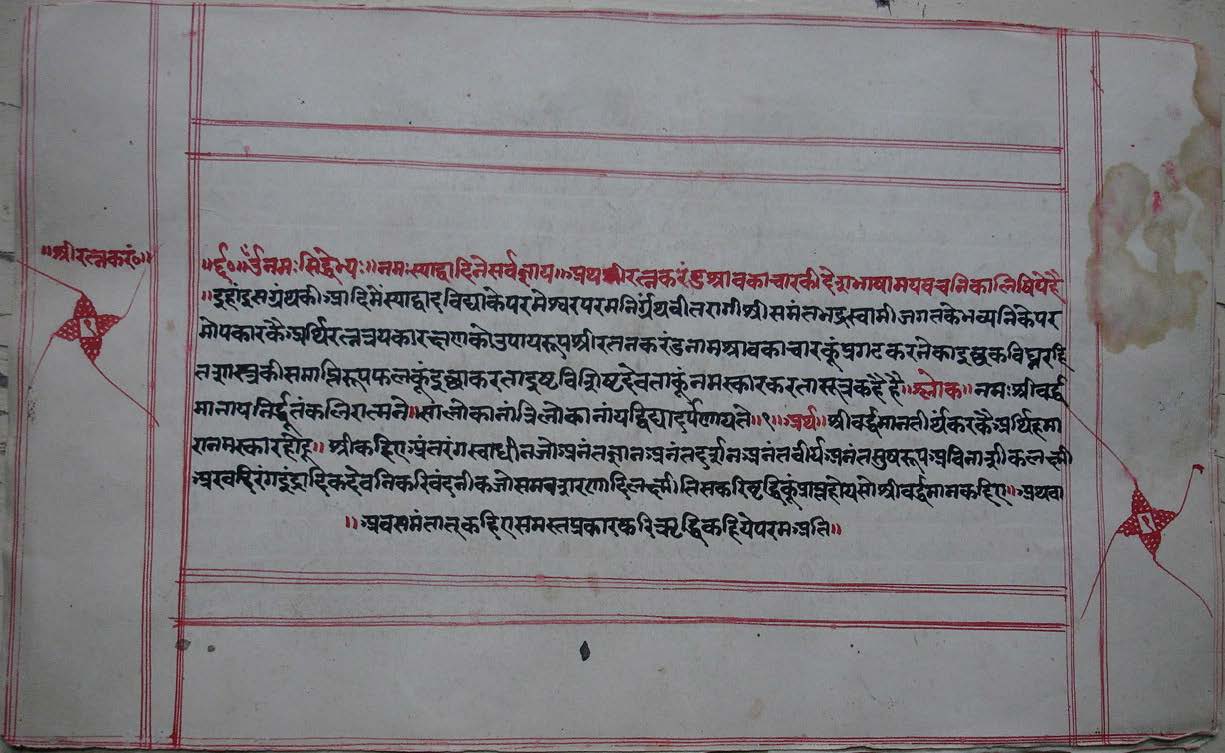 ॥श्रीरत्नकरं०॥
॥र्द०॥ उँनमःसिद्धेभ्यः॥ नमःस्याद्वादिनेसर्वज्ञाय॥ अथश्रीरत्नकरंडश्रावकाचारकीदेशभाषामयवचनिकालिषियेहै
॥इहांइसग्रंथकीआदिमेंस्याद्वादविद्याकेपरमेश्वरपरमनिर्ग्रंथवीतरागीश्रीसमंतभद्रस्वामीजगतकेभव्यनिकेपर
मोपकारकैअर्थिरत्नत्रयकारक्षणकोउपायरूपश्रीरतनकरंडनामश्रावकाचारकूंप्रगटकरनेकाइछुकविघ्नरहि
तशास्त्रकीसमाप्तिरूपफलकूंइछाकरताइष्टविशिष्टदेवताकूंनमस्कारकरतासूत्रकहैहै॥श्लोक॥ नमःश्रीवर्द्ध
मानायनिर्द्धूतकलिरात्मने॥ सालोकानांत्रिलोकानांयद्विद्यादर्पणायते॥१॥ अर्थ॥ श्रीवर्द्धमानतीर्थंकरकैअर्थिहमा
रानमस्कारहोहू॥ श्रीकहिएअंतरंगस्वाधीनजोअनंतज्ञानअनंतदर्शनअनंतवीर्यअनंतसुषरूपअविनाशीकलक्ष्मी
अरवहिरंगइंद्रादिकदेवनिकरिवंदनीकजोसमवशरणादिलक्ष्मीतिसकरिवृद्धिकूंप्राप्तहोयसोश्रीवर्द्धमानकहिए॥ अथवा
॥अवसमंतात्कहिएसमस्तप्रकारकरिऋद्धिकहियेपरमअति॥
१
१